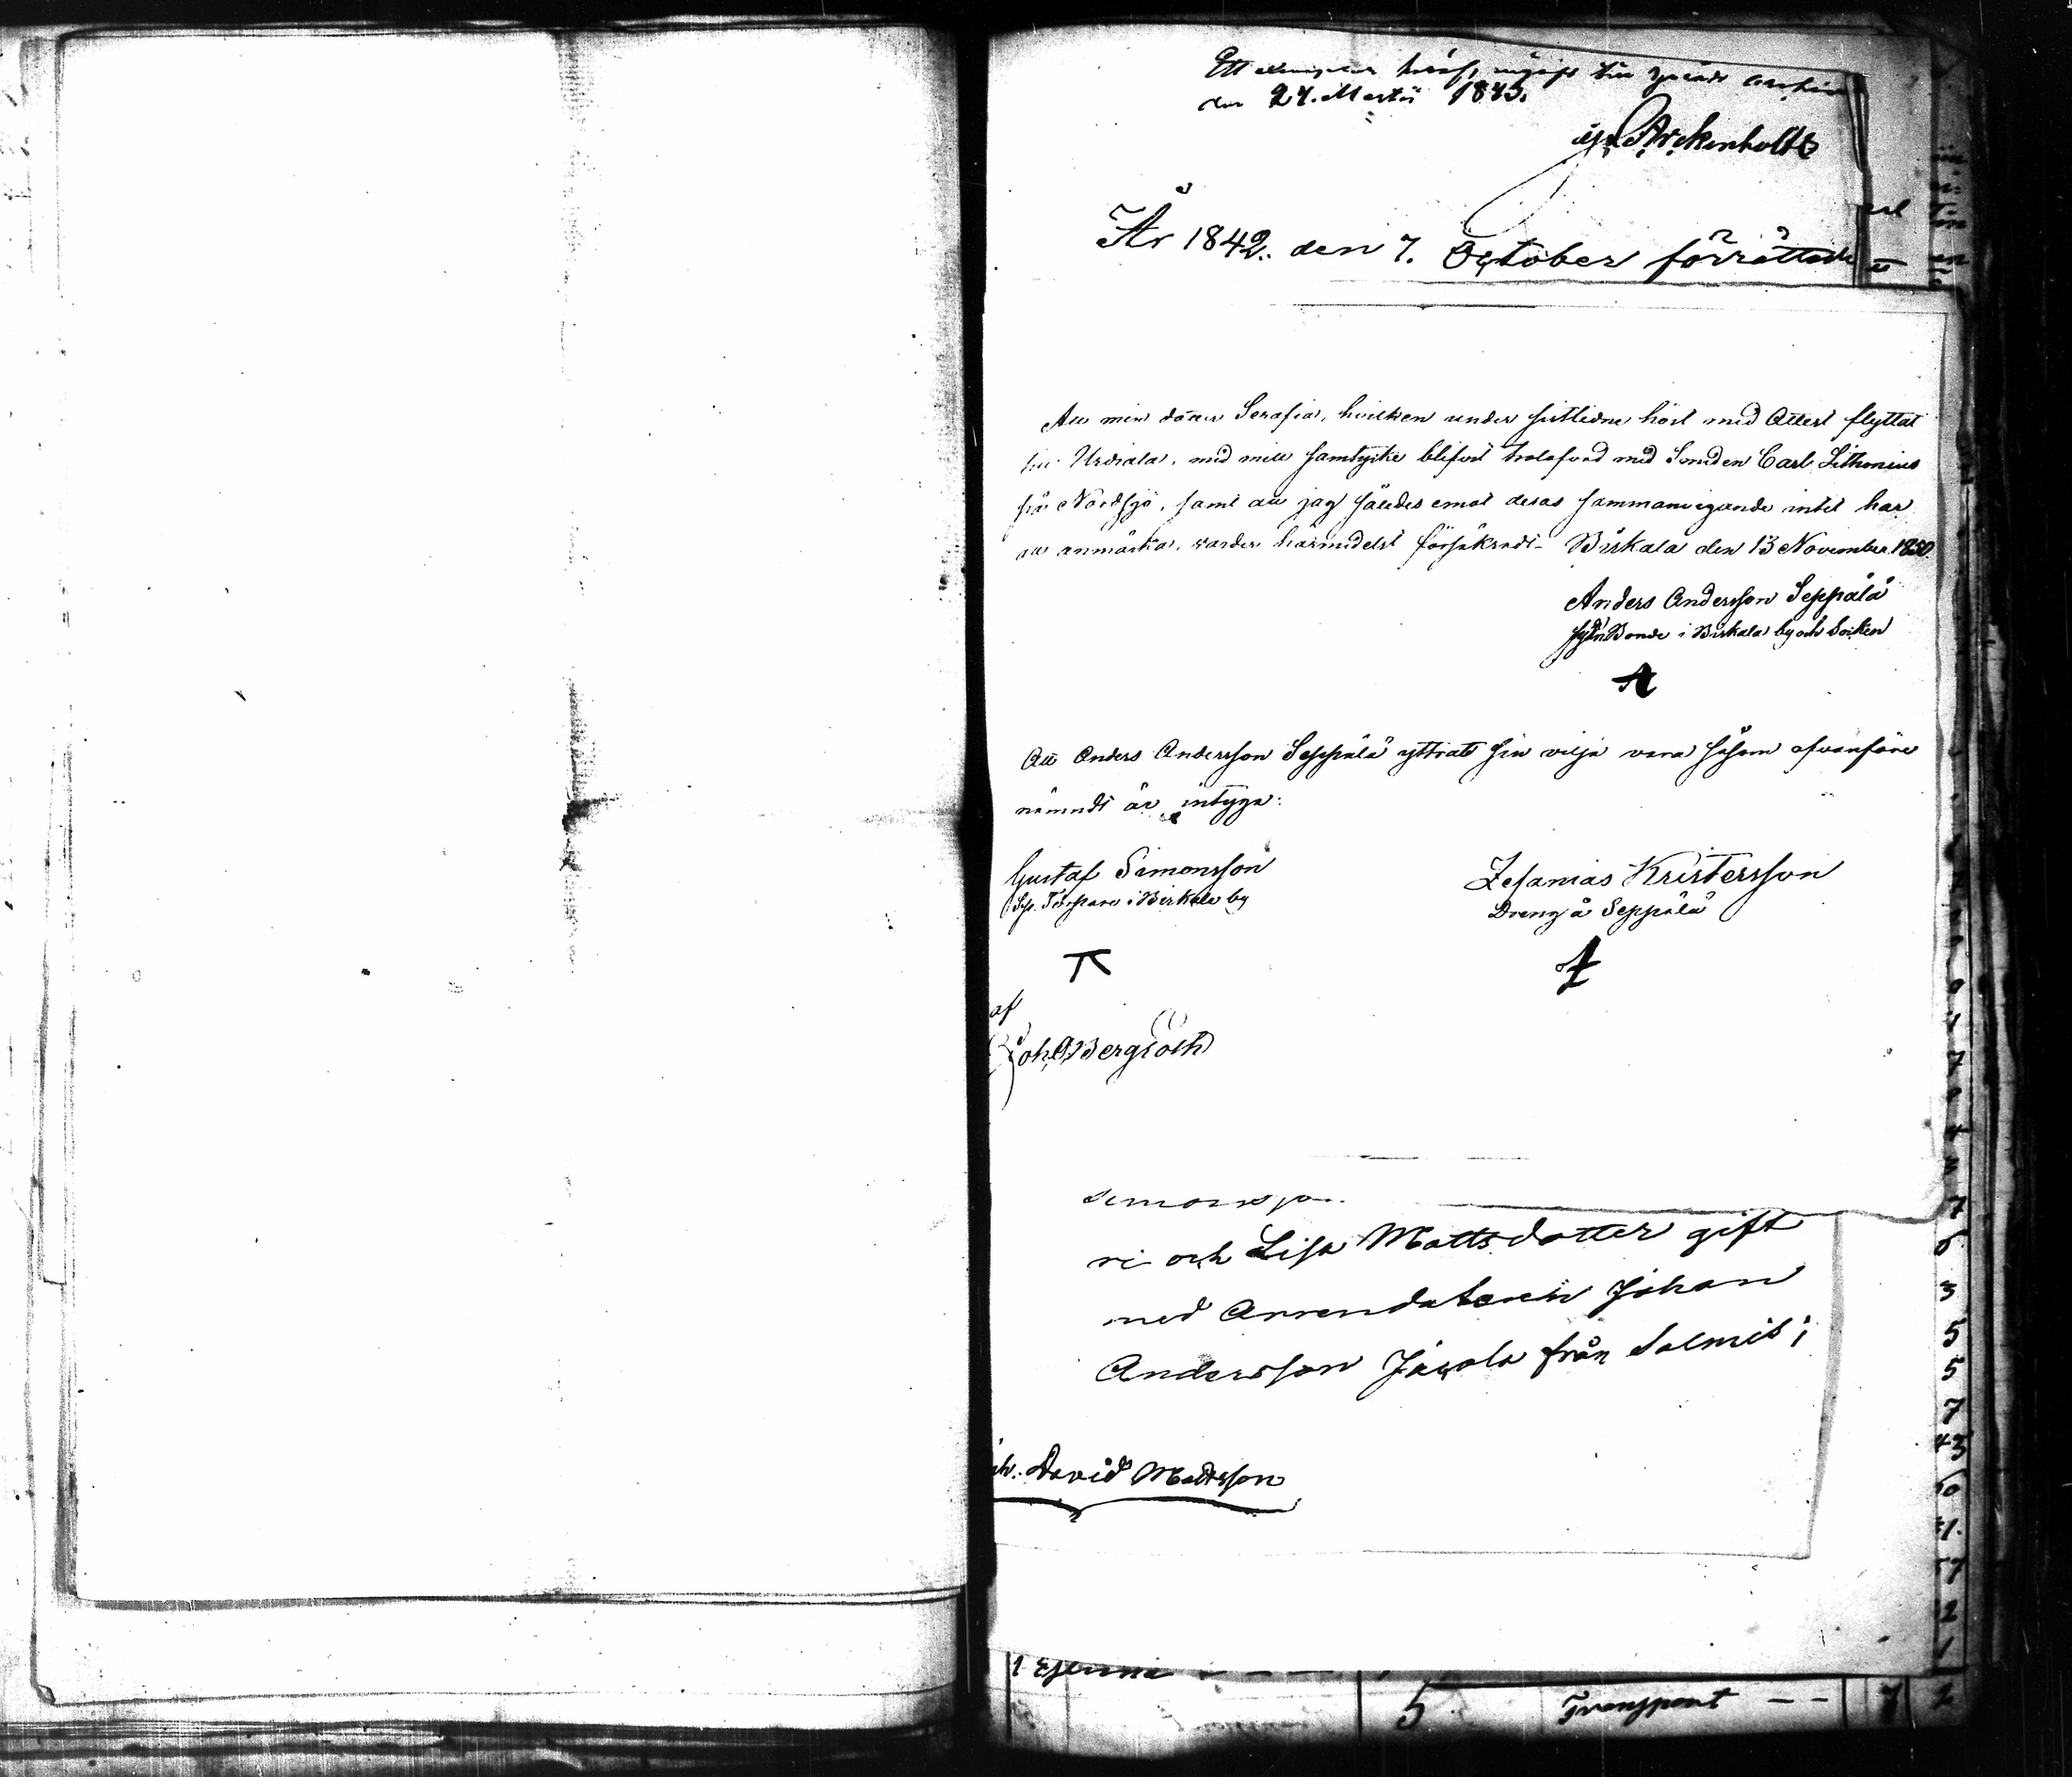 Ett exemplar häraf, till archiv
den 24. Martii 1843.
Arckenholtz
År 1842. den 7. October förrättade
Att min dotter Serafia, hvilken under sistledne höst med Attest flyttat
till Urdiala, med mitt samtycke blifvit trolofvad med Smeden Carl Lithonius
från Nordsjö, samt att jag således emot deras sammanvigande intet har
att anmärka, varder härmedelst försäkradt. Birkala den 13 November 1850.
Anders Andersson Seppälä
Bonde i Birkala by och Socken
A
Att Anders Andersson Seppälä yttrat sin vilja vara såsom ofvanföre
nämndt är, intyga:
Gustaf Simonsson
Zefanias Kristersson
Torpare i Birkala by
Dreng å Seppälä
af
Joh. Bergroth
ri och Lisa Mattsdotter gift
med Arrendatoren Johan
Andersson Jäcola från Salmis i
David Mattsson
5 Transport - - 7